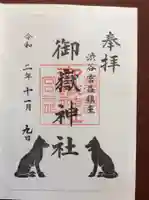 奉拝
渋谷宮益鎮座
御嶽神社
令和二年十一月九日